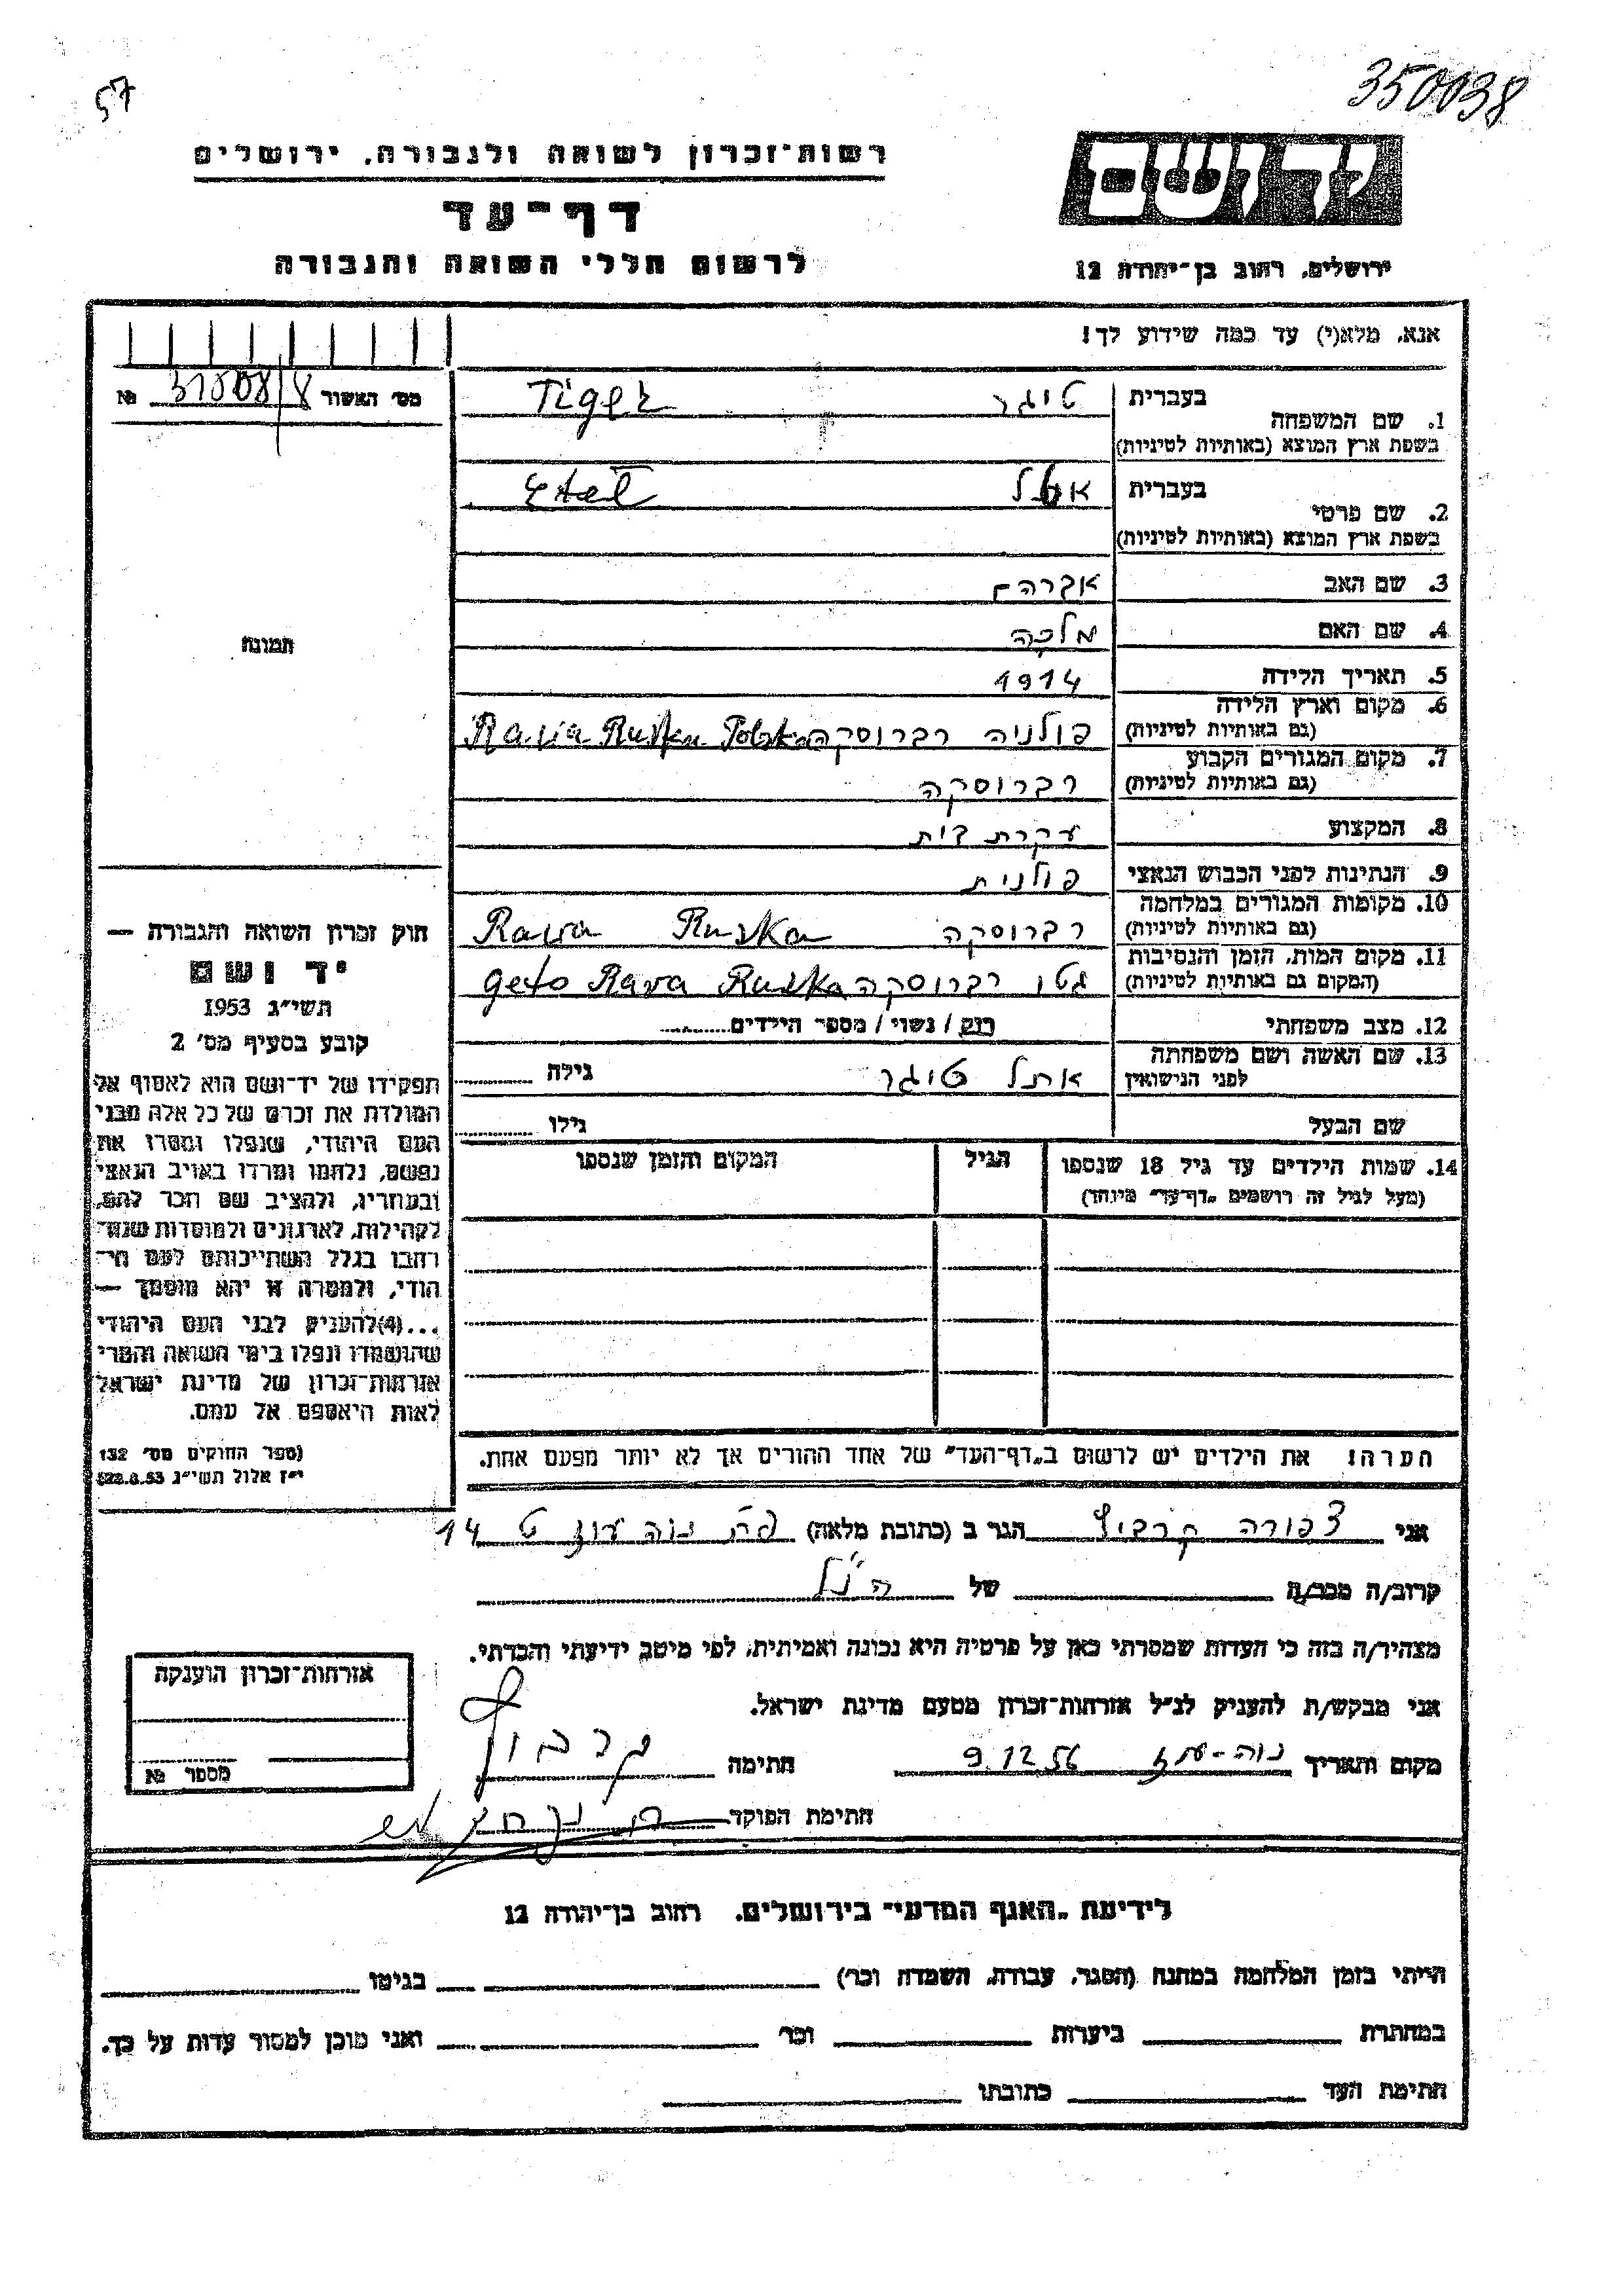 57
350038
יד ושם
רשות־זכרון לשואה ולגבורה, ירושלים
דף־עד
לרשום חללי השואה והגבורה
ירושלים, רחוב בן־יהודה 12
אנא, מלא(י) עד כמה שידוע לך!
מס׳ האשור №
1. שם המשפחה
בעברית טיגר Tiger
בשפת ארץ המוצא (באותיות לטיניות)
2. שם פרטי
בעברית אטל Etel
בשפת ארץ המוצא (באותיות לטיניות)
3. שם האב אברהם
4. שם האם מלכה
5. תאריך הלידה 1914
6. מקום וארץ הלידה
(גם באותיות לטיניות) פולניה רברוסקה Rawa Ruska Polska
7. מקום המגורים הקבוע
(גם באותיות לטיניות) רברוסקה
8. המקצוע עקרת בית
9. הנתינות לפני הכבוש הנאצי פולנית
10. מקומות המגורים במלחמה
(גם באותיות לטיניות) רברוסקה Rawa Ruska
11. מקום המות, הזמן והנסיבות
(המקום גם באותיות לטיניות) גטו רברוסקה geto Rawa Ruska
12. מצב משפחתי רוק / נשוי / מספר הילדים
13. שם האשה ושם משפחתה
לפני הנישואין אתל טיגר גילה
שם הבעל גילו
14. שמות הילדים עד גיל 18 שנספו
(מעל לגיל זה רושמים „דף־עד״ מיוחד)
הגיל
המקום והזמן שנספו
הערה! את הילדים יש לרשום ב„דף־העד״ של אחד ההורים אך לא יותר מפעם אחת.
תמונה
חוק זכרון השואה והגבורה —
יד ושם
תשי״ג 1953
קובע בסעיף מס׳ 2
תפקידו של יד־ושם הוא לאסוף אל
המולדת את זכרם של כל אלה מבני
העם היהודי, שנפלו ומסרו את
נפשם, נלחמו ומרדו באויב הנאצי
ובעוזריו, ולהציב שם וזכר להם,
לקהילות, לארגונים ולמוסדות שנח־
רבו בגלל השתייכותם לעם הי־
הודי, ולמטרה זו יהא מוסמך —
...(4)להעניק לבני העם היהודי
שהושמדו ונפלו בימי השואה והמרי
אזרחות־זכרון של מדינת ישראל
לאות היאספם אל עמם.
(ספר החוקים מס׳ 132
י״ז אלול תשי״ג 28.8.53)
אני צפורה הגר ב (כתובת מלאה) 14
קרוב/ה מכר/ה של הנ״ל
מצהיר/ה בזה כי העדות שמסרתי כאן על פרטיה היא נכונה ואמיתית, לפי מיטב ידיעתי והכרתי.
אני מבקש/ת להעניק לנ״ל אזרחות־זכרון מטעם מדינת ישראל.
מקום ותאריך נוה־עוז 9.12.56 חתימה
חתימת הפוקד
אזרחות־זכרון הוענקה
מספר №
לידיעת „האגף המדעי״ בירושלים, רחוב בן־יהודה 12
הייתי בזמן המלחמה במחנה (הסגר, עבודה, השמדה וכו׳) בגיטו
במחתרת ביערות וכו׳ ואני מוכן למסור עדות על כך.
חתימת העד כתובתו